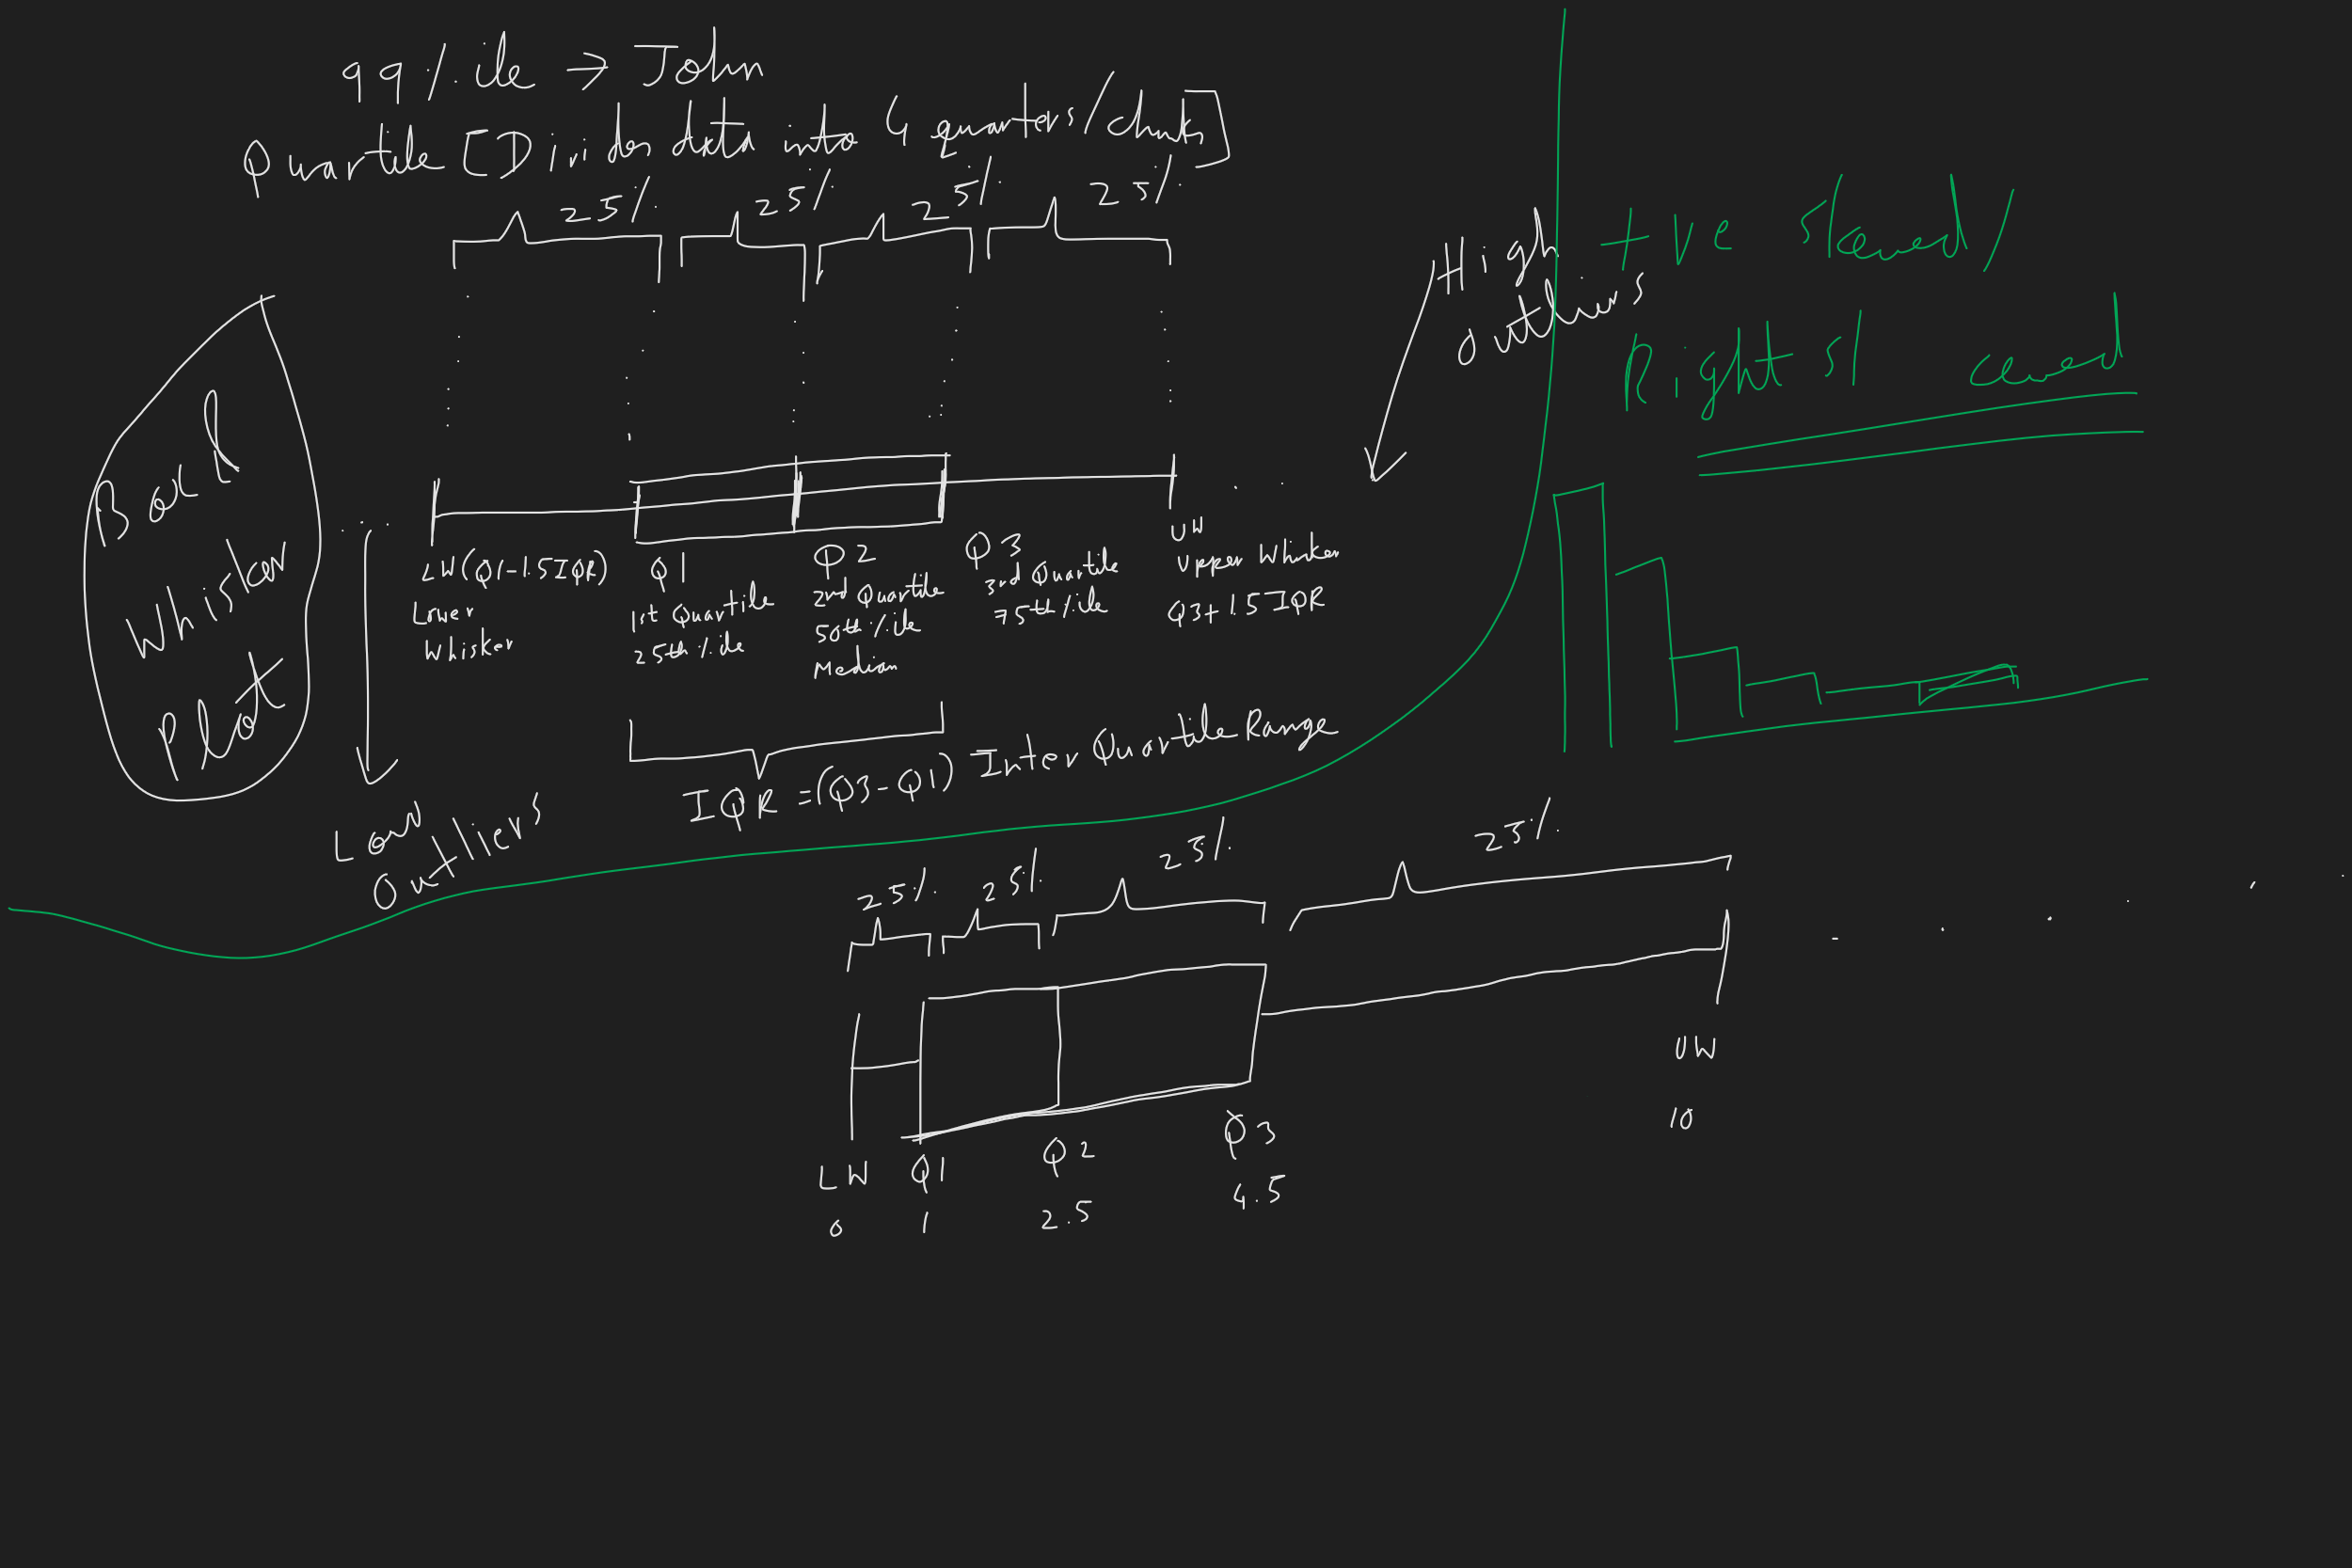 99%ile → John
Quartile [Divides data into 4 quarters/chunks]
25% 25% 25% 25%
High
outliers
Box &
Whisker
Plot
LW(Q1-1.5IQR)
Lower
Whisker
Q1
1st Quartile
25th%ile
Q2
2nd Quartile
50th%ile
Median
Q3
3rd Quartile
75th%ile
UW
Upper Whisker
Q3+1.5IQR
IQR =(Q3-Q1) Inter Quartile Range
Low
Outliers
+ve skewed/
Right skewed
25% 25% 25% 25%
LW Q1 Q2 Q3 UW
0 1 2.5 4.5 10